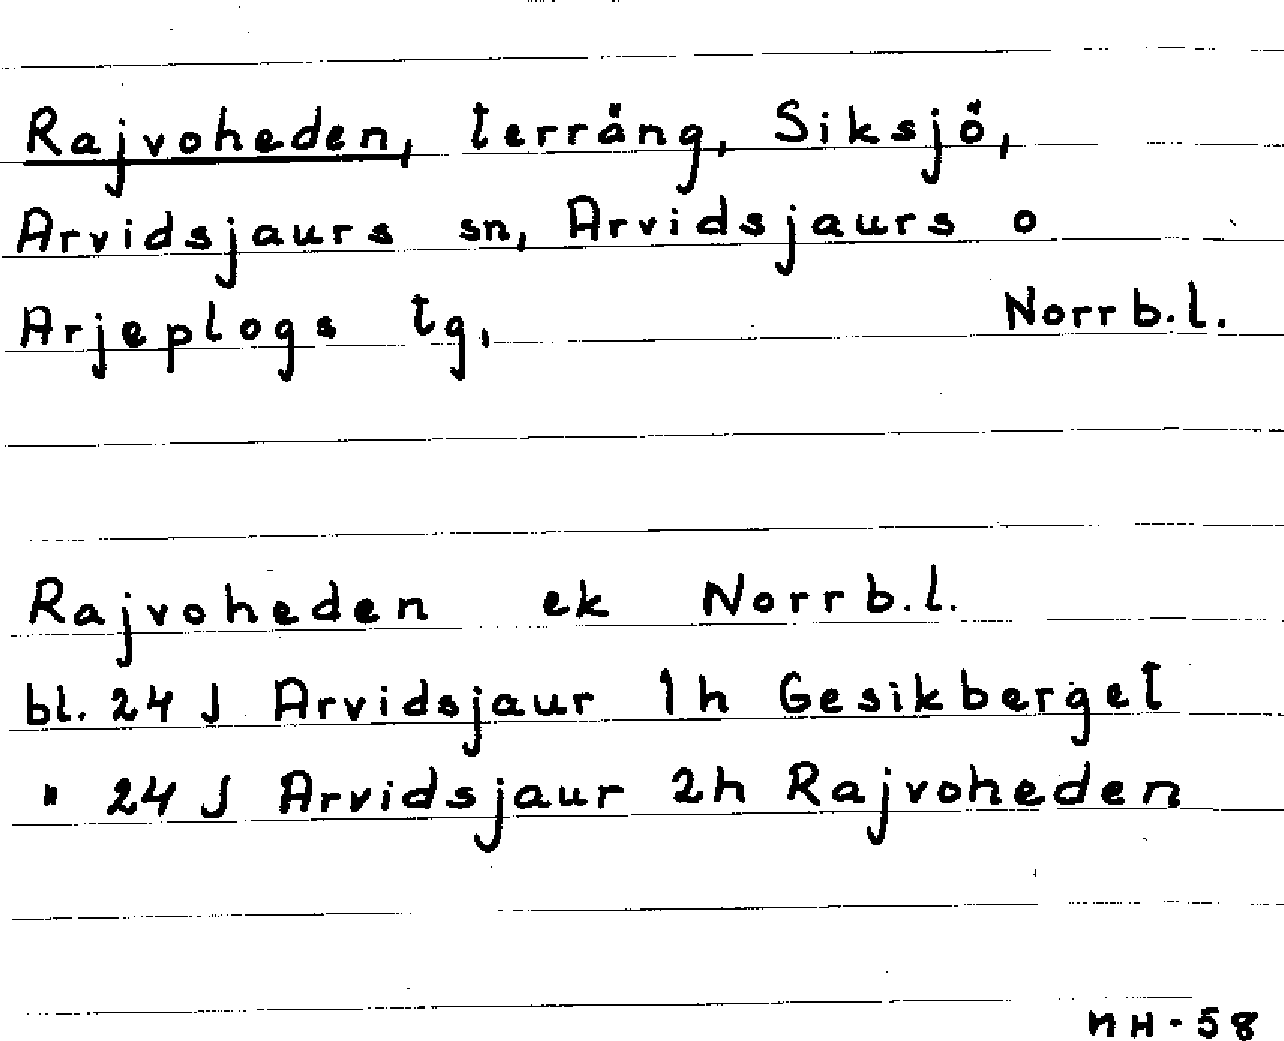 Rajvoheden, terräng, Siksjö,
Arvidsjaurs sn, Arvidsjaurs o
Arjeplogs tg, Norrb.l.
Rajvoheden ek Norrb.l.
bl. 24 J Arvidsjaur 1h Gesikberget
" 24 J Arvidsjaur 2h Rajvoheden
NH-58